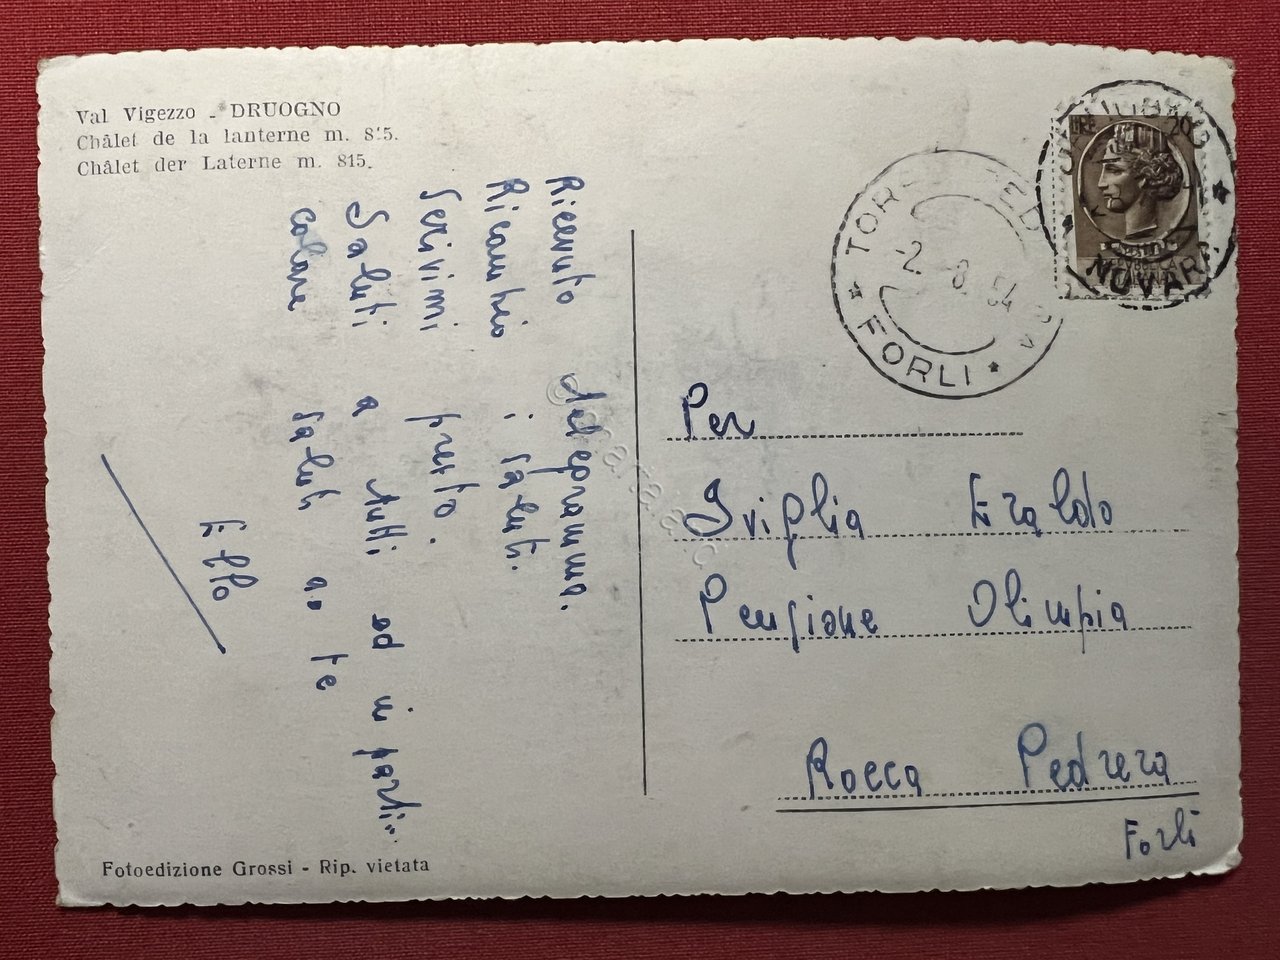 Val Vigezzo - DRUOGNO
Châlet de la lanterne m. 815.
Châlet der Laterne m. 815.
Ricevuto telegramma.
Ricambio i saluti.
Scrivimi presto.
Saluti a tutti ed in parti-
colare saluti a te
Per
Sviglia Eraldo
Pensione Olimpia
Rocca Pedrera
Forlì
LIRE 20
NOVARA
FORLI
-2.-8.54
Fotoedizione Grossi - Rip. vietata